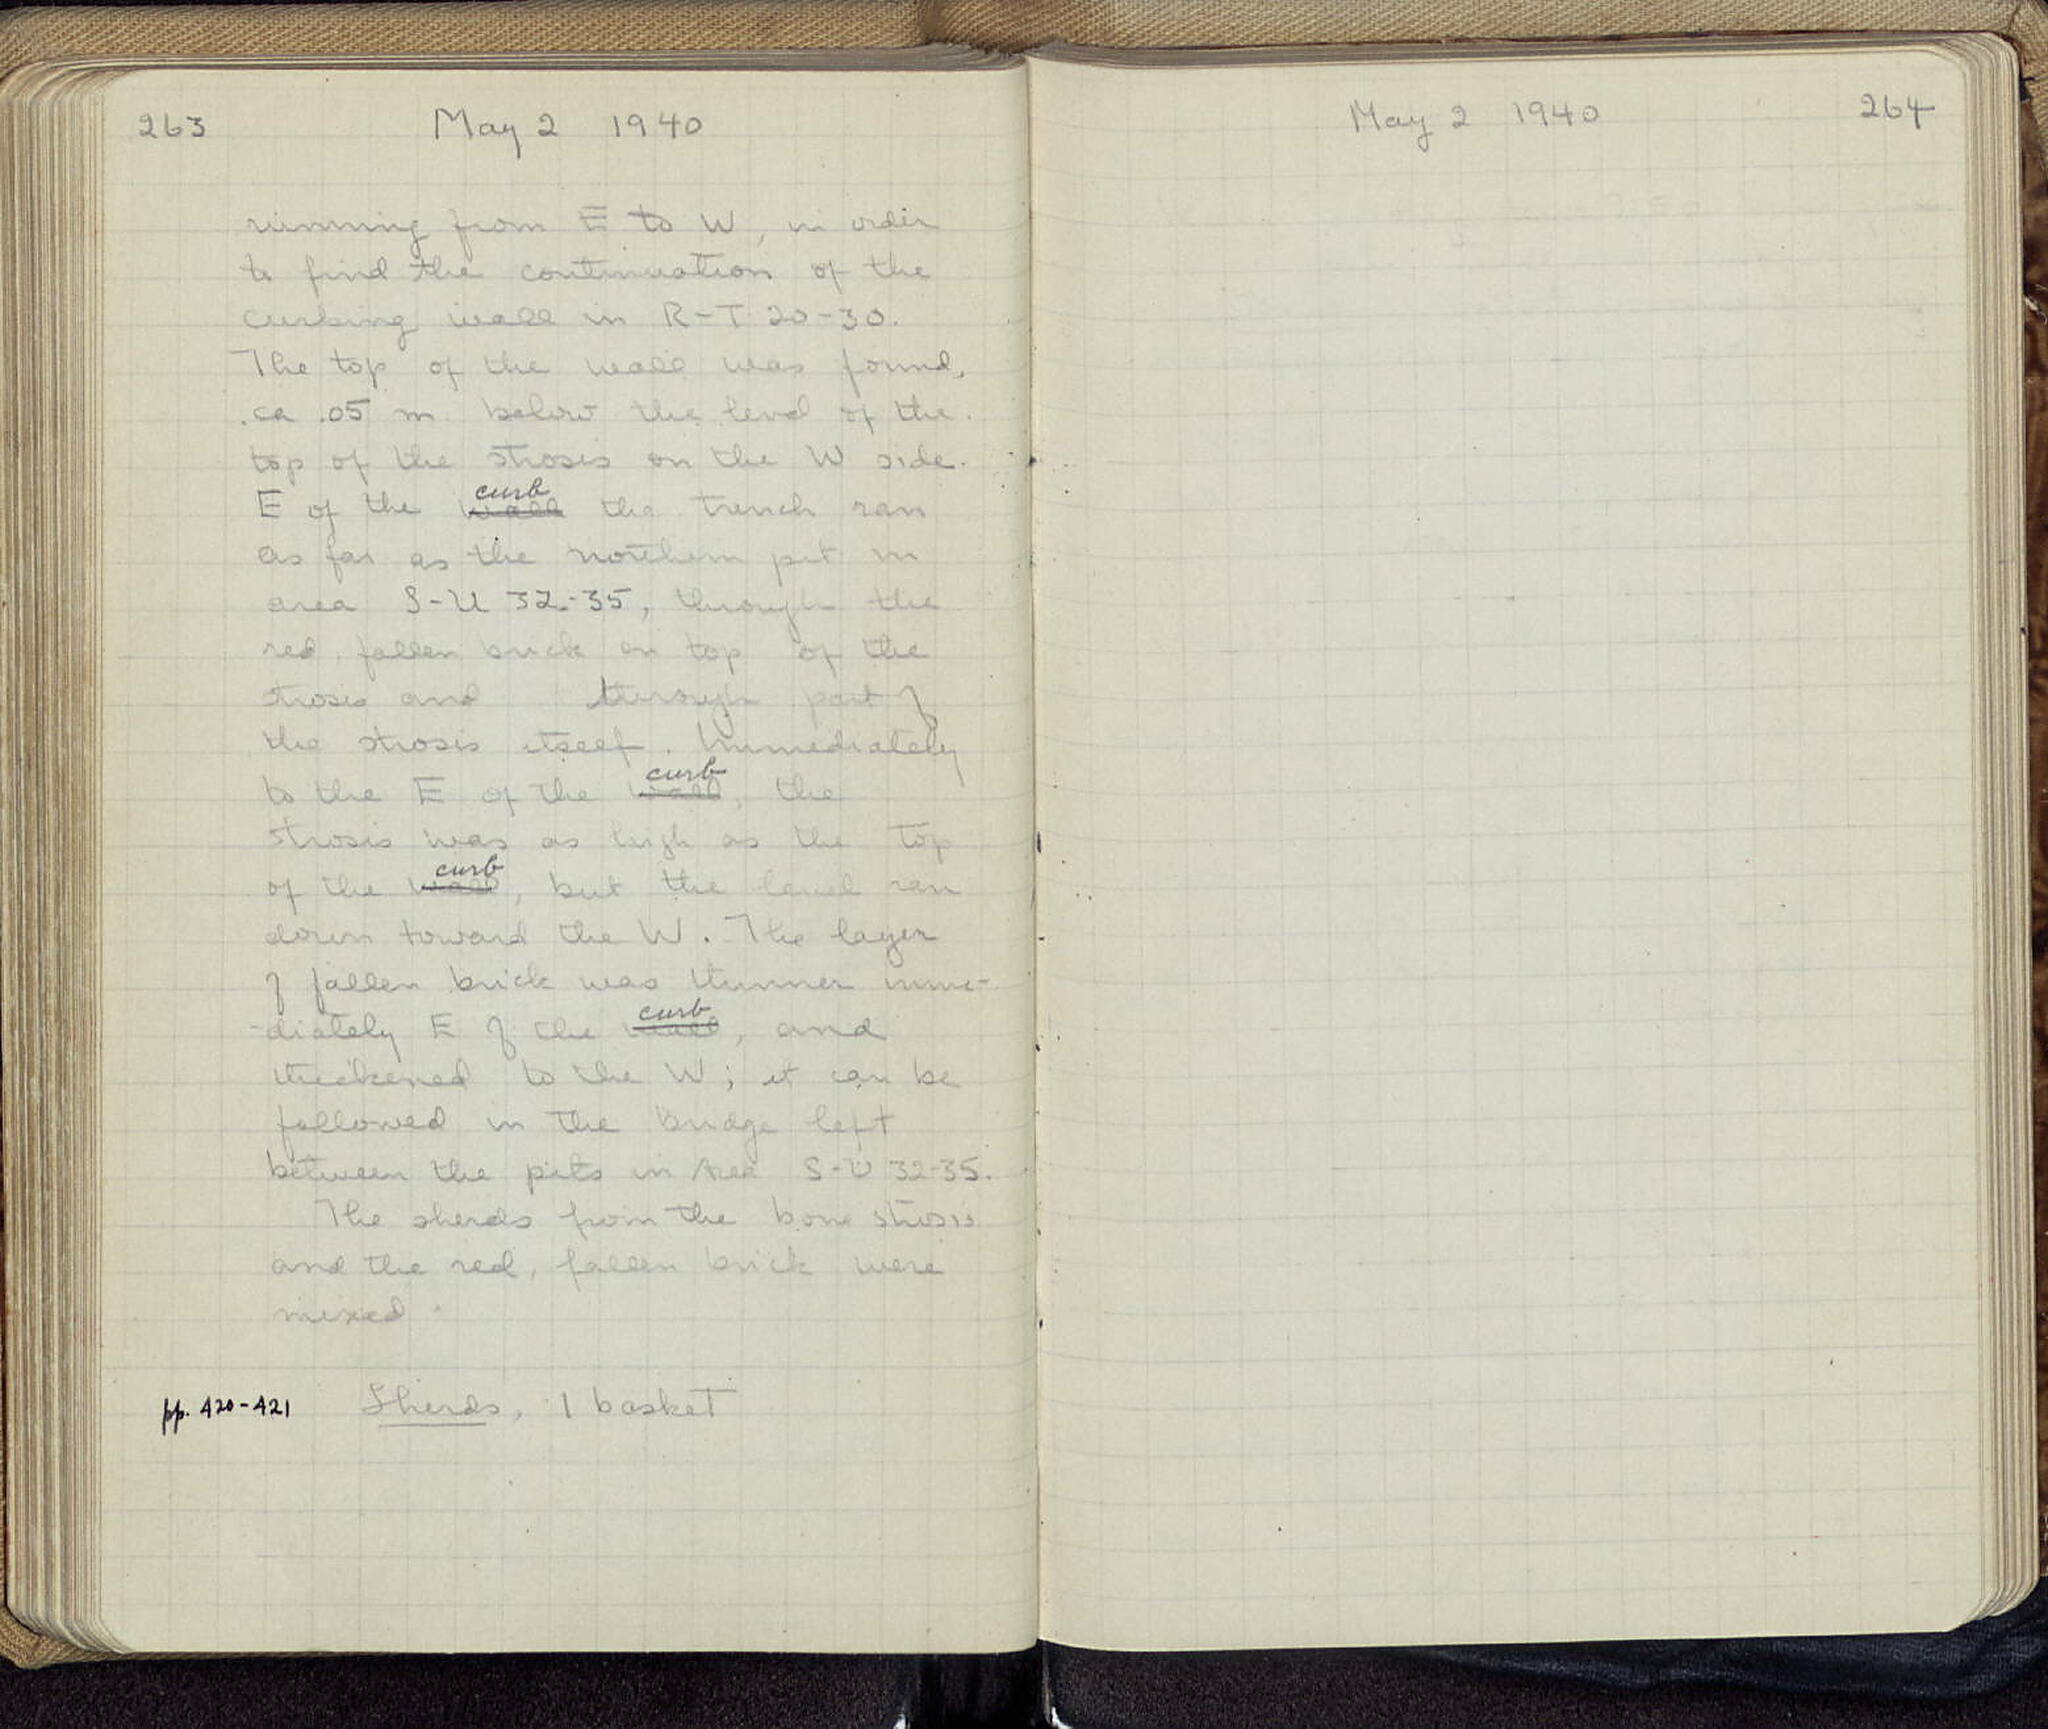 263 May 2 1940
running from E to W, in order
to find the continuation of the
curbing wall in R-T 20-30.
The top of the wall was found,
ca .05 m. below the level of the
top of the strosis on the W side.
curb
E of the wall the trench ran
as far as the northern pit in
area S-U 32-35, through the
red, fallen brick on top of the
strosis and through part of
the strosis itself. Immediately
curb
to the E of the wall, the
strosis was as high as the top
curb
of the wall, but the level ran
down toward the W. The layer
of fallen brick was thinner imme-
curb
-diately E of the wall, and
thickened to the W; it can be
followed in the bridge left
between the pits in Area S-U 32-35.
The sherds from the bone strosis
and the red, fallen brick were
mixed.
pp. 420-421 Sherds, 1 basket
May 2 1940 264